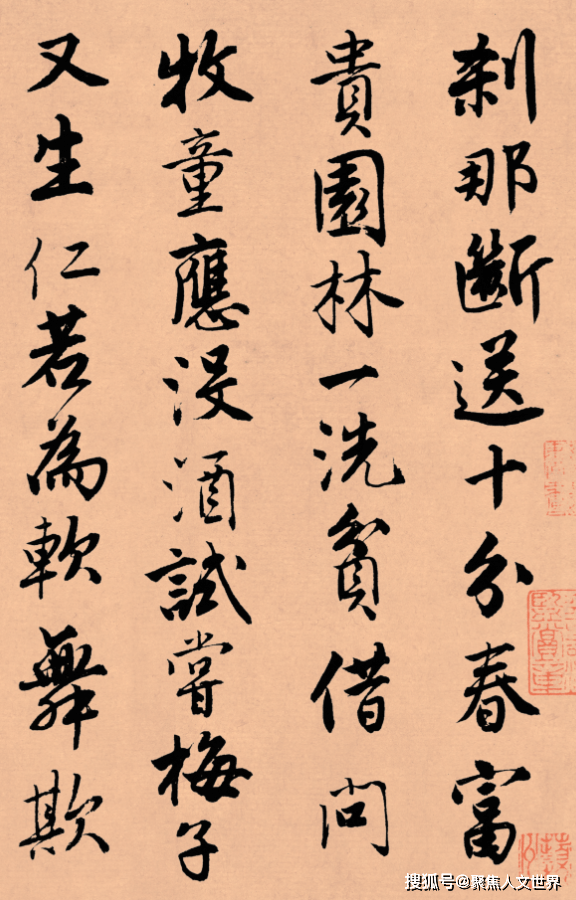 刹那斷送十分春富
貴園林一洗貧借問
牧童應沒酒試嘗梅子
又生仁若為軟舞欺
搜狐号@聚焦人文世界